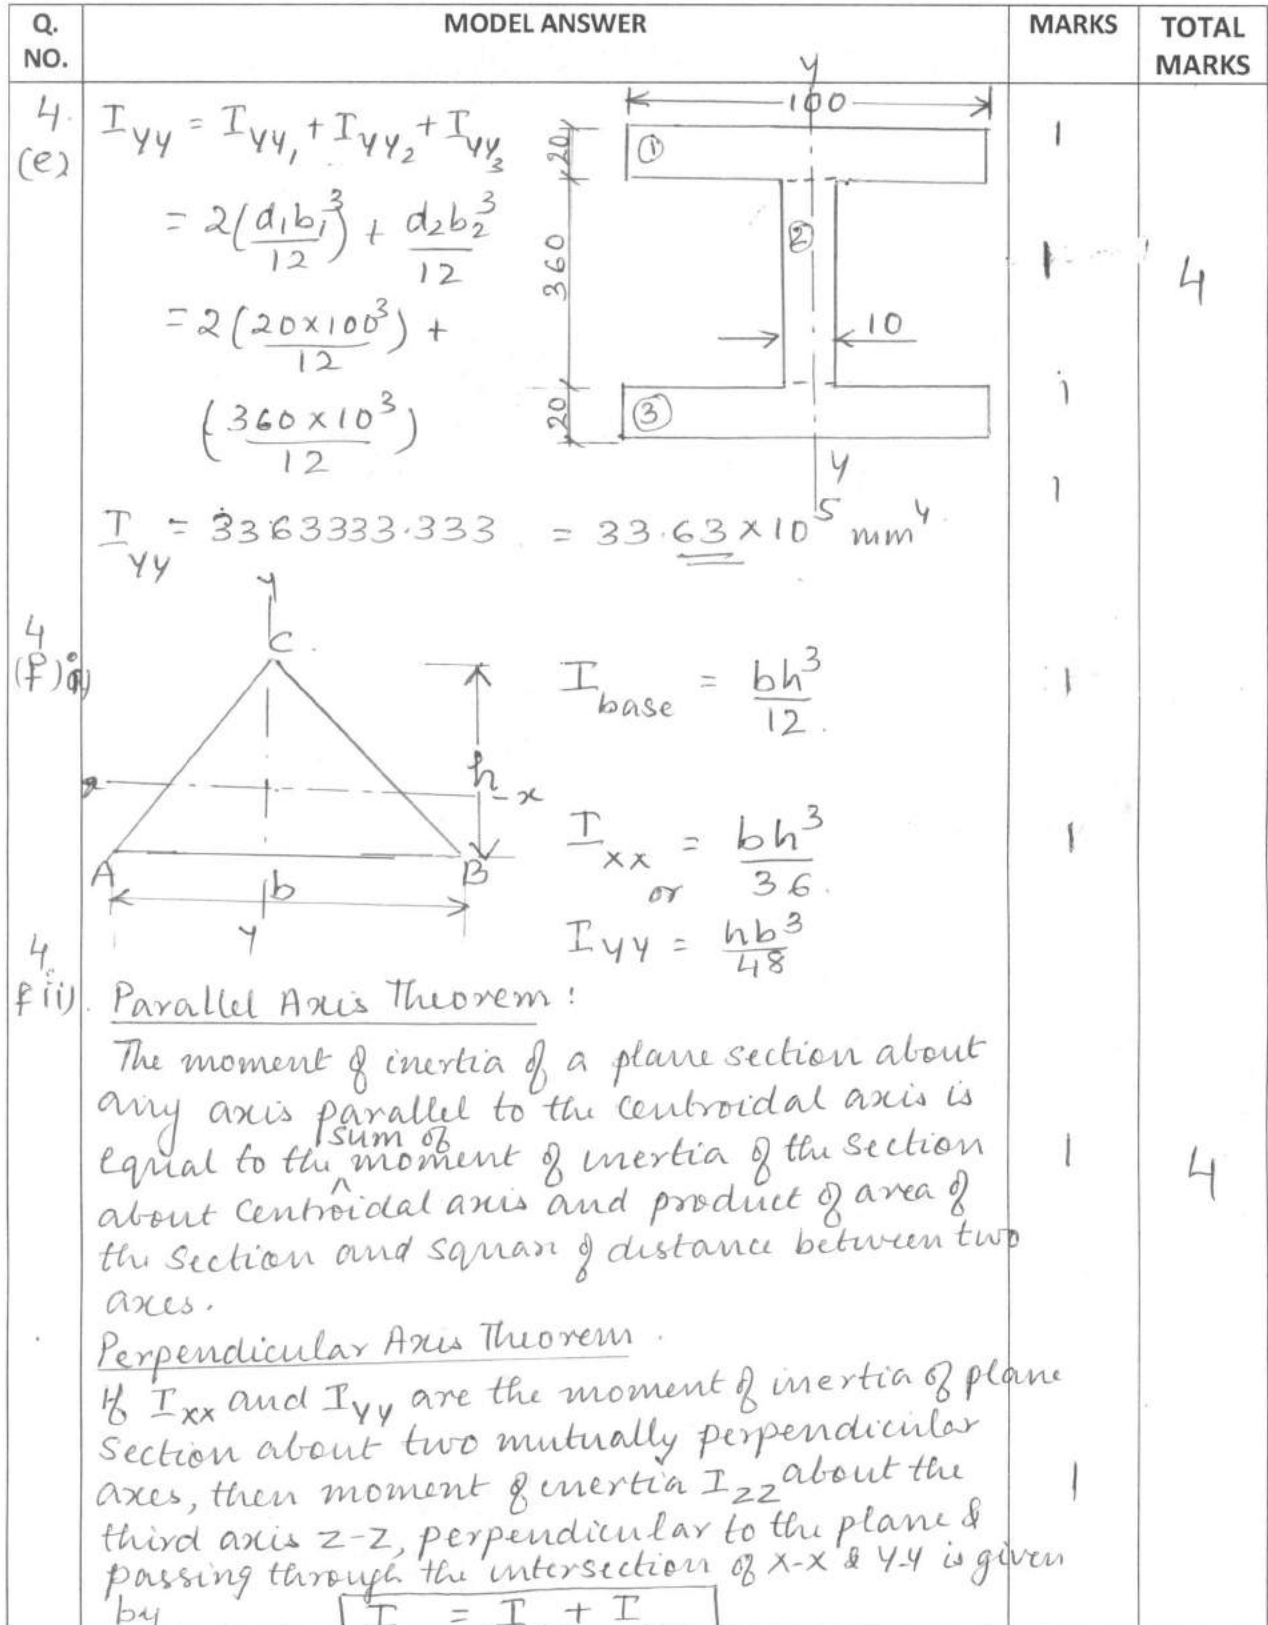 Q. NO. MODEL ANSWER MARKS TOTAL MARKS
4. (e)
I_yy = I_yy1 + I_yy2 + I_yy3
= 2(d1b1³/12) + d2b2³/12
= 2(20×100³/12) +
(360×10³/12)
I_yy = 3363333.333 = 33.63×10⁵ mm⁴
y
100
20
①
360
②
10
20
③
y
1
1
1
1
4
4 (f) i)
y
C.
h
x
A
b
B
y
I_base = bh³/12. 1
I_xx = bh³/36. 1
or
I_yy = hb³/48
4 f ii). Parallel Axis Theorem :
The moment of inertia of a plane section about
any axis parallel to the centroidal axis is
equal to the sum of moment of inertia of the section 1 4
about centroidal axis and product of area of
the section and square of distance between two
axes.
Perpendicular Axis Theorem.
If I_xx and I_yy are the moment of inertia of plane
section about two mutually perpendicular
axes, then moment of inertia I_zz about the 1
third axis z-z, perpendicular to the plane &
passing through the intersection of x-x & y-y is given
by I = I + I